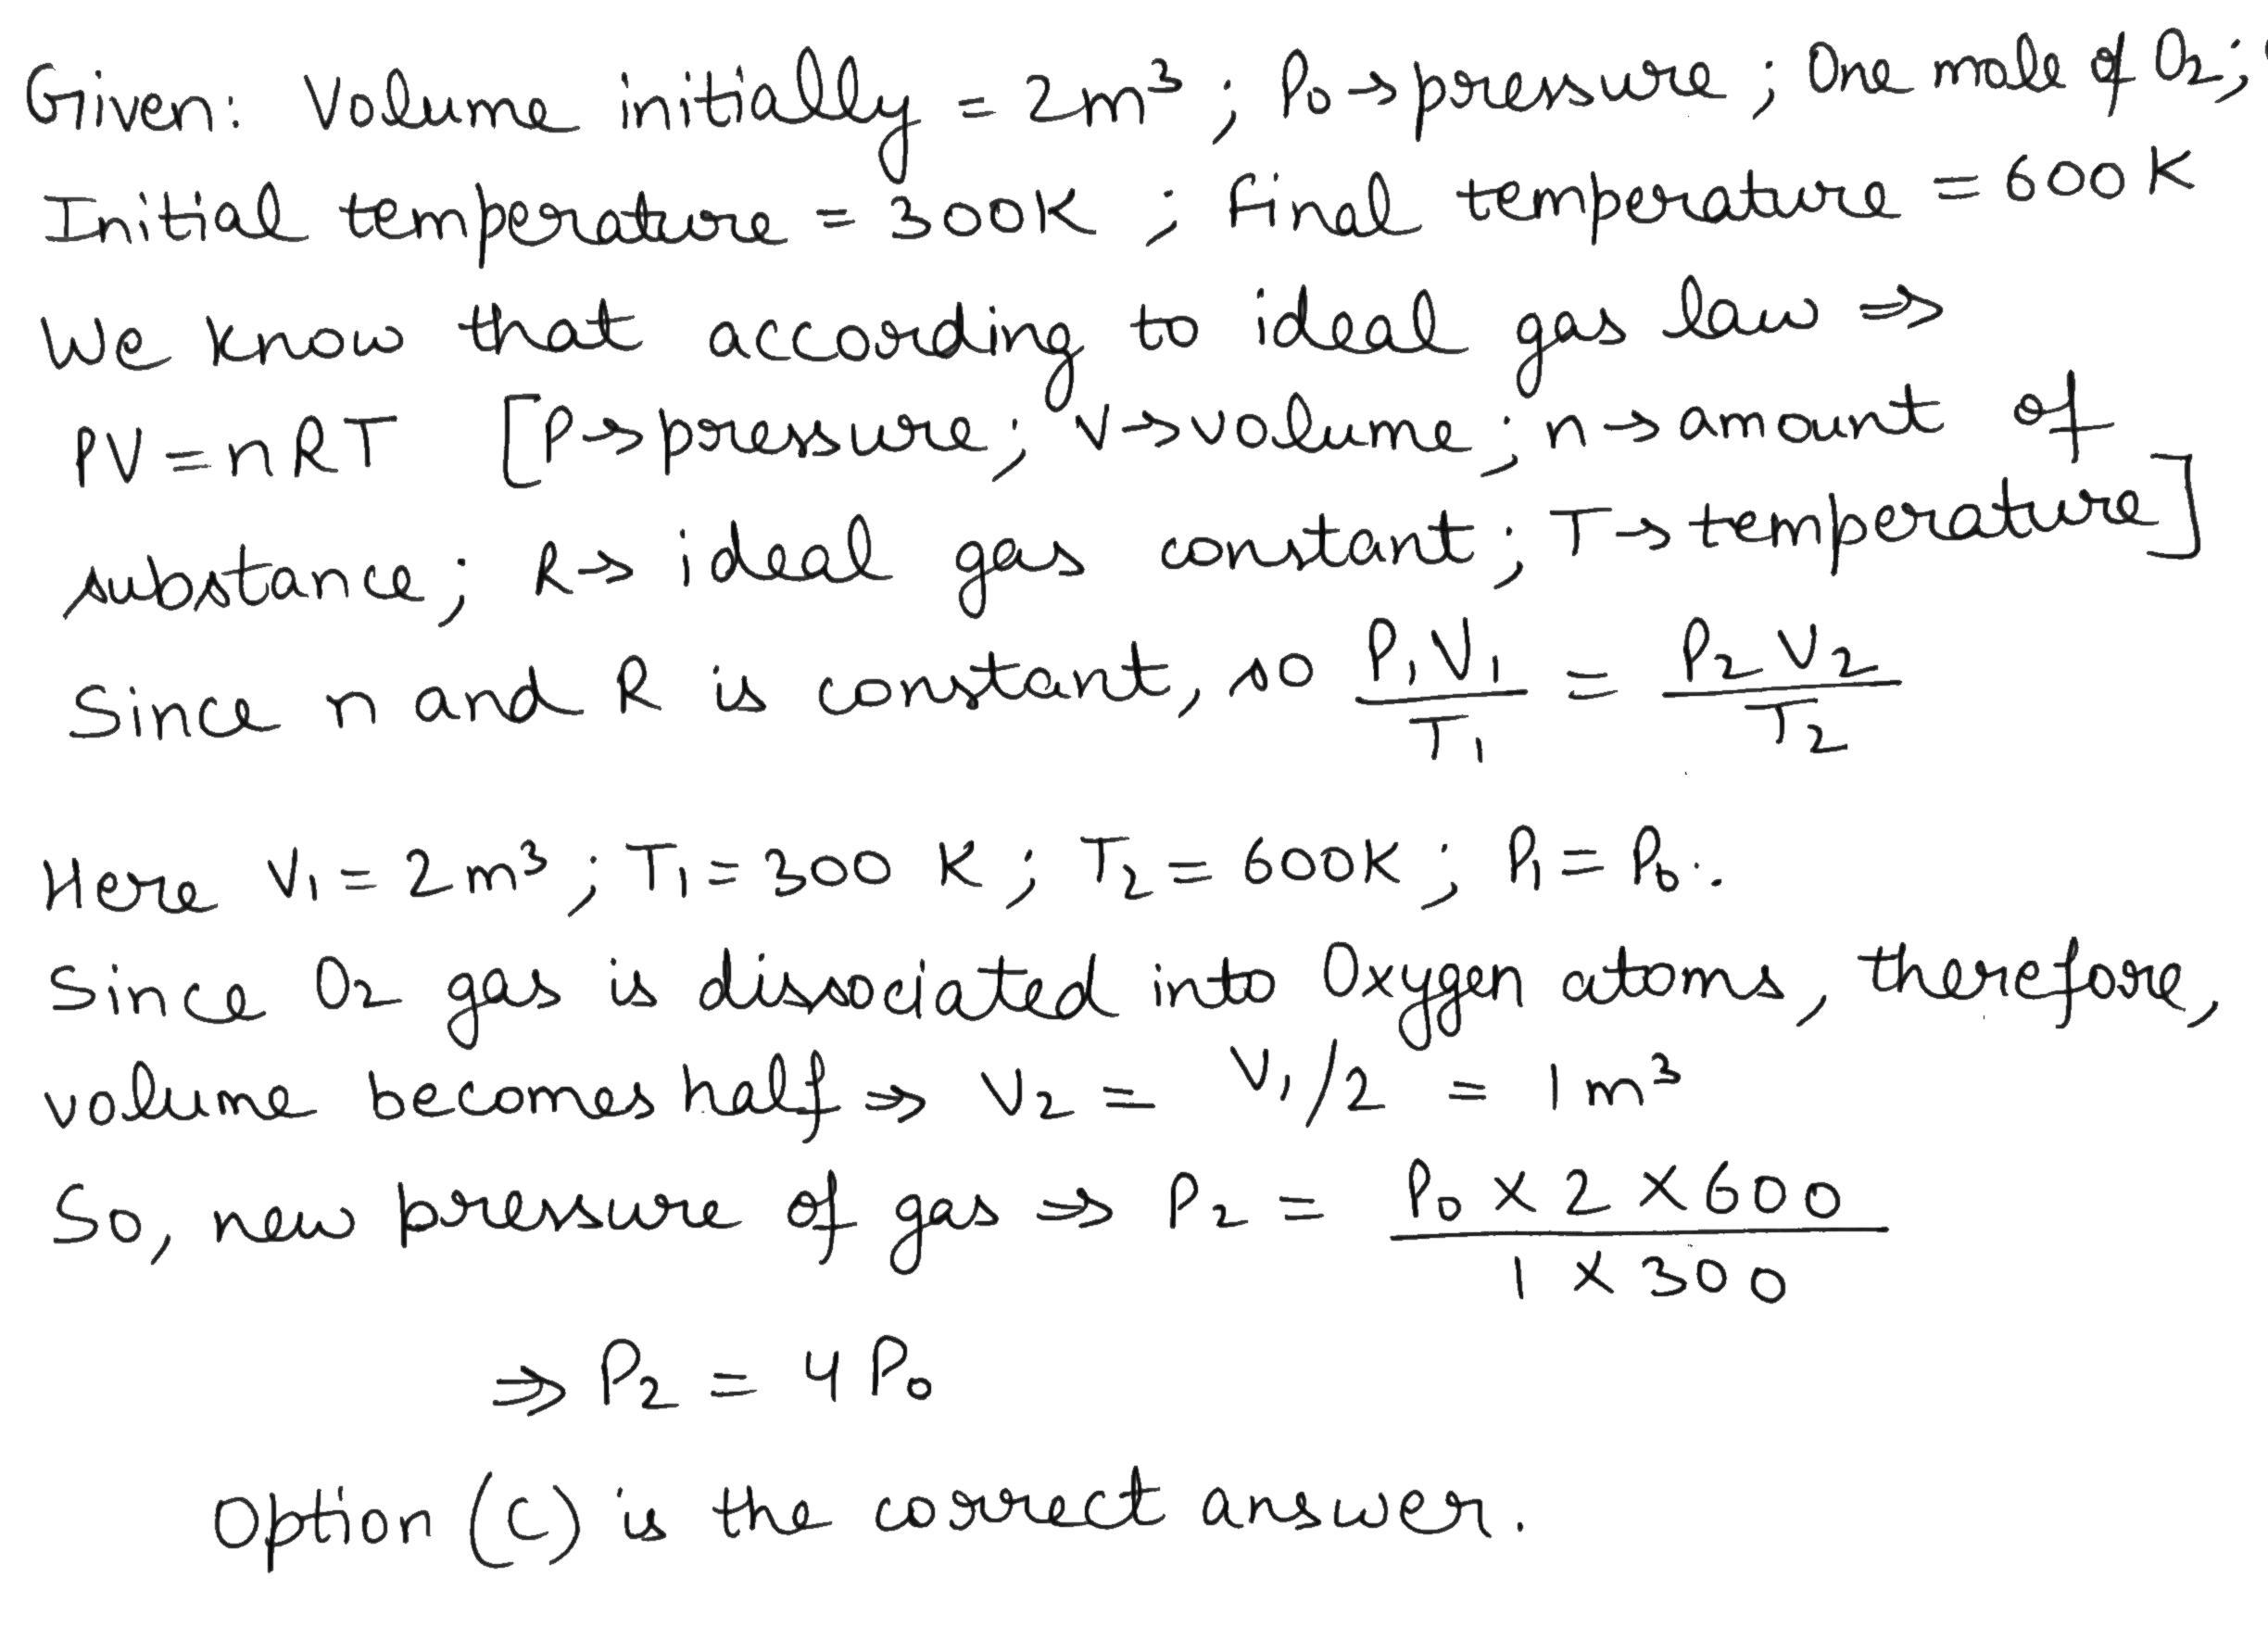 Given: Volume initially = 2m³ ; P₀→pressure ; One mole of O₂;
Initial temperature = 300K ; Final temperature = 600K
We know that according to ideal gas law ⇒
PV = nRT [P→pressure; V→volume; n→amount of
substance; R→ ideal gas constant; T→temperature]
Since n and R is constant, so P₁V₁/T₁ = P₂V₂/T₂
Here V₁ = 2m³ ; T₁ = 300 K ; T₂ = 600K ; P₁ = P₀.
Since O₂ gas is dissociated into Oxygen atoms, therefore,
volume becomes half ⇒ V₂ = V₁/2 = 1m³
So, new pressure of gas ⇒ P₂ = P₀ × 2 × 600 / 1 × 300
⇒ P₂ = 4P₀
Option (C) is the correct answer.